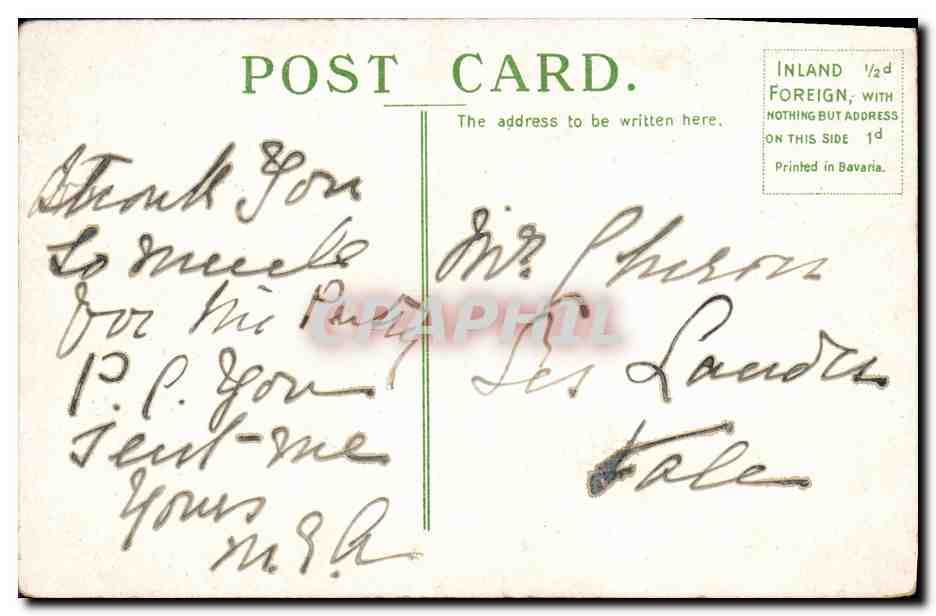 POST CARD.
The address to be written here.
INLAND ½d
FOREIGN, WITH
NOTHING BUT ADDRESS
ON THIS SIDE 1d
Printed in Bavaria.
Thank You
So Much
for the Pretty
P.C. You
Sent-me
Yours
M.E.A
Mr. Cheron
Les Landes
Vale
CPAPHIL